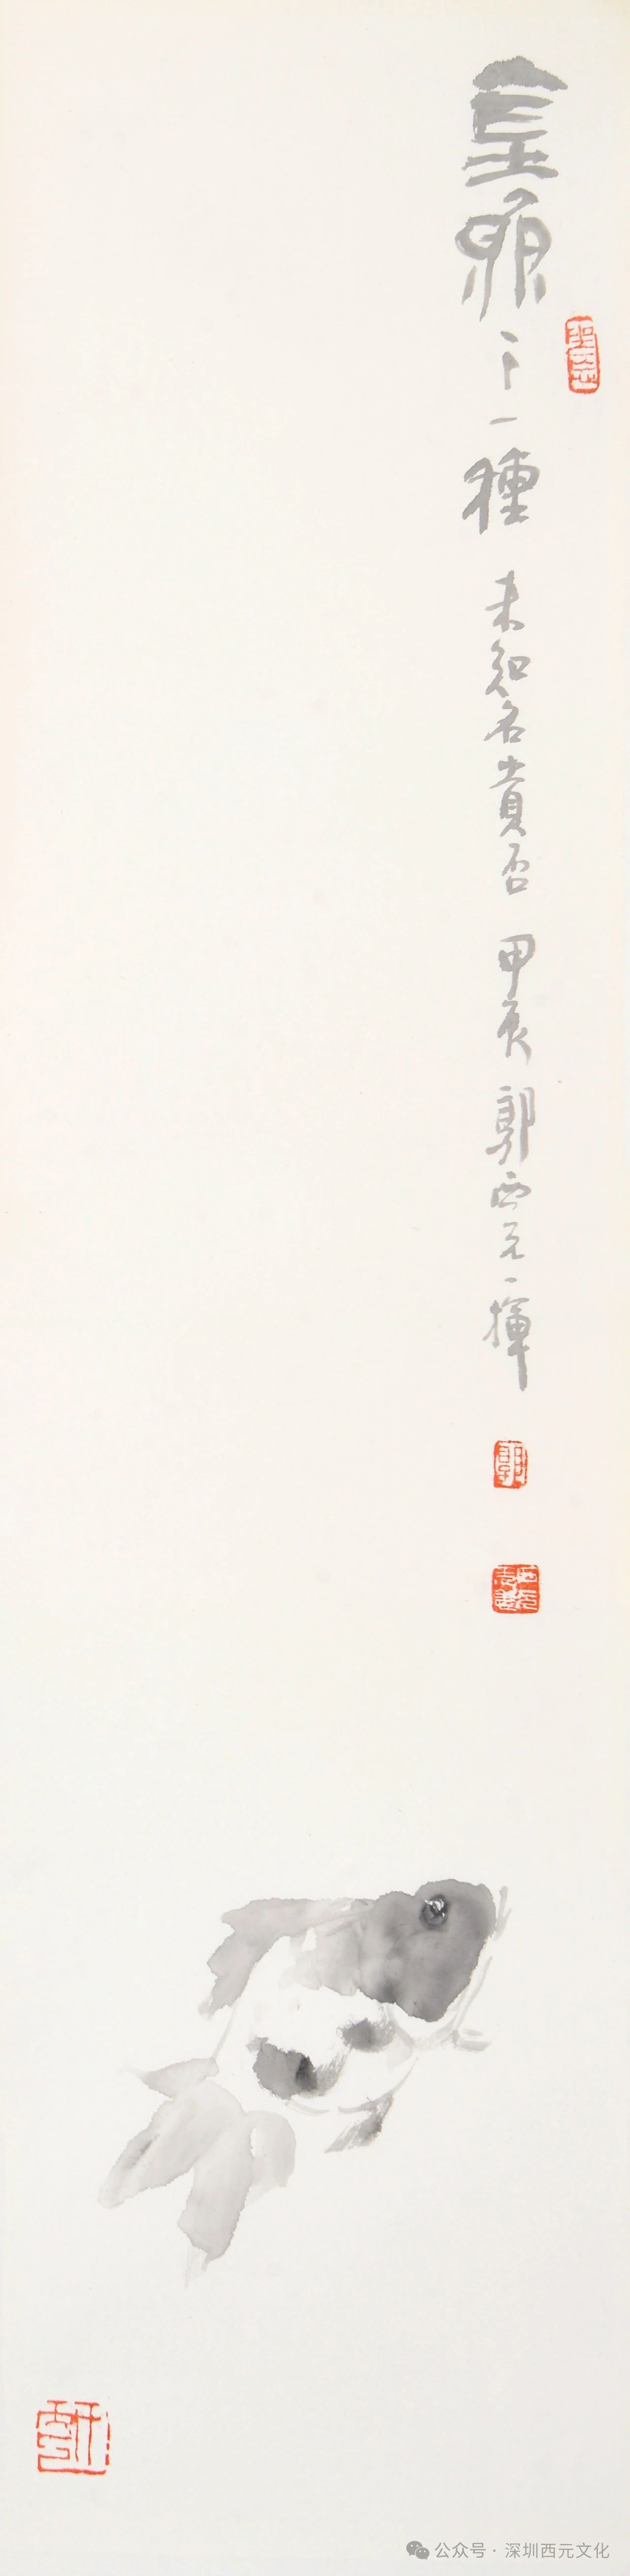 之一種 未知名貴否 甲辰 郭西元一揮
公众号·深圳西元文化